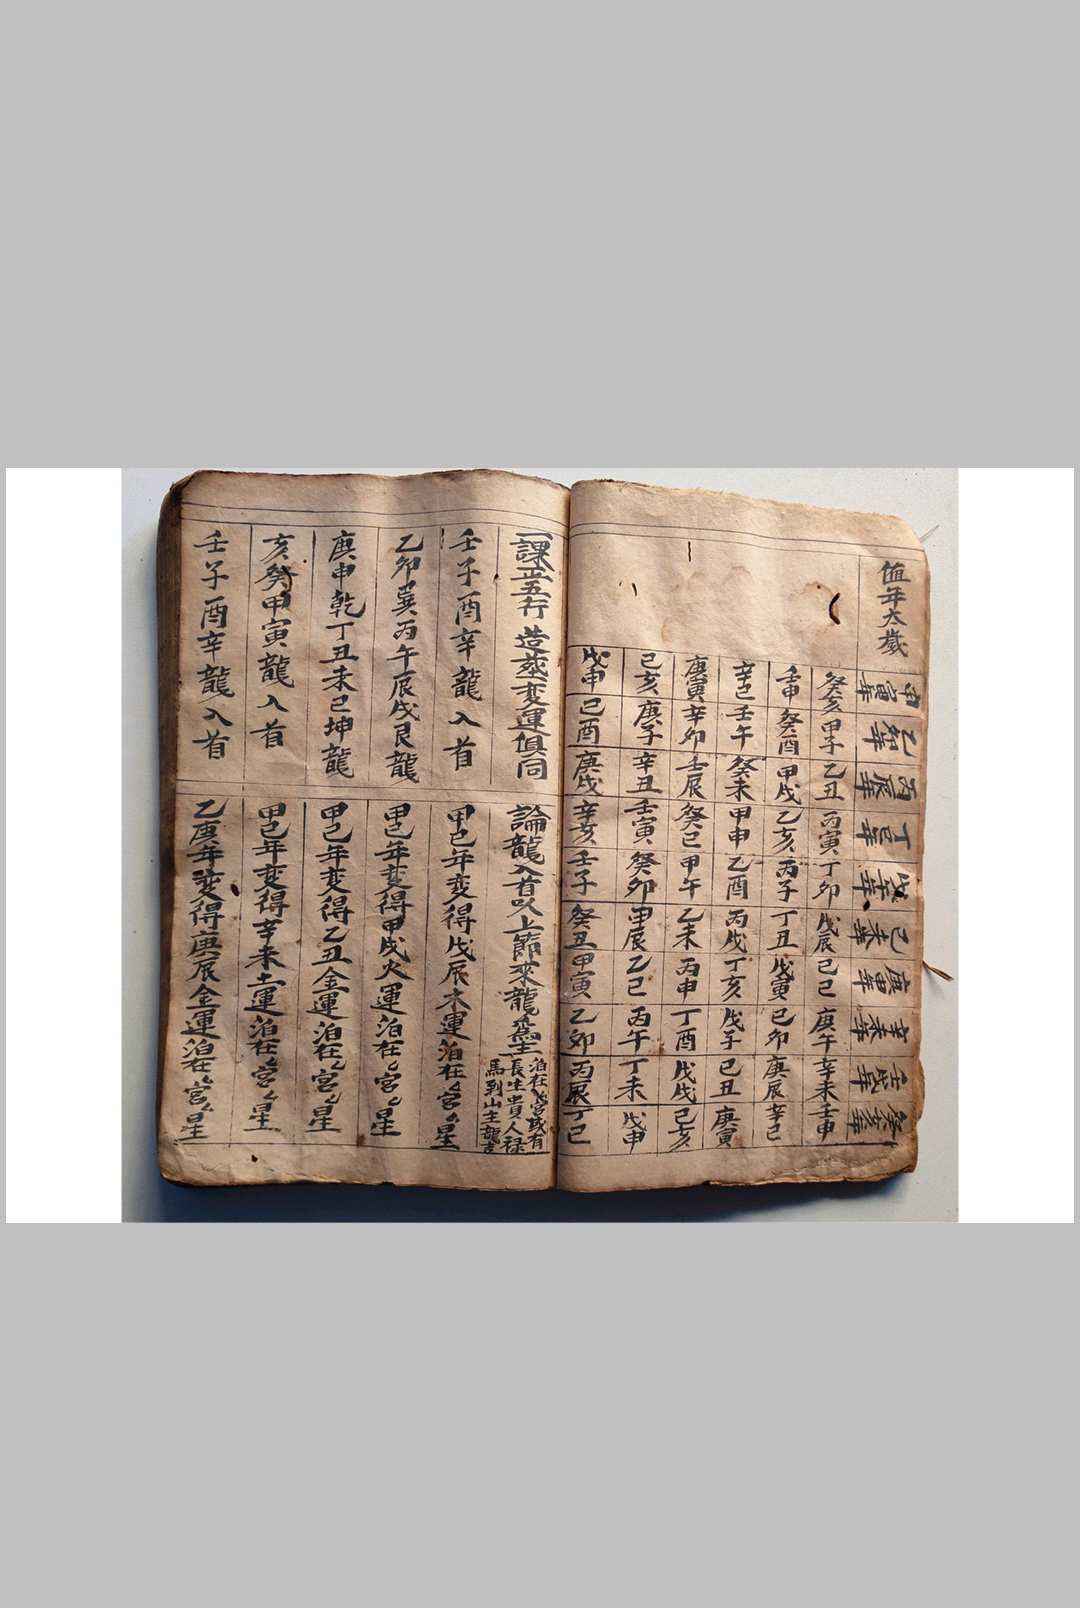 值年太歲
甲寅年 乙卯年 丙辰年 丁巳年 戊午年 己未年 庚申年 辛酉年 壬戌年 癸亥年
癸亥 甲子 乙丑 丙寅 丁卯 戊辰 己巳 庚午 辛未 壬申
壬申 癸酉 甲戌 乙亥 丙子 丁丑 戊寅 己卯 庚辰 辛巳
辛巳 壬午 癸未 甲申 乙酉 丙戌 丁亥 戊子 己丑 庚寅
庚寅 辛卯 壬辰 癸巳 甲午 乙未 丙申 丁酉 戊戌 己亥
己亥 庚子 辛丑 壬寅 癸卯 甲辰 乙巳 丙午 丁未 戊申
戊申 己酉 庚戌 辛亥 壬子 癸丑 甲寅 乙卯 丙辰 丁巳
一課正五行造葬变運俱同
壬子酉辛龍入首
乙卯巽丙午辰戌艮龍
庚申乾丁丑未巳坤龍
亥癸甲寅龍入首
壬子酉辛龍入首
論龍入首以上節來龍為主
泊在㕕宮或有
長生貴人禄
馬到山主龍吉
甲己年变得戊辰木運泊在㕕宮㕕星
甲己年变得甲戌火運泊在㕕宮㕕星
甲己年变得乙丑金運泊在㕕宮㕕星
甲己年变得辛未土運泊在㕕宮㕕星
乙庚年变得庚辰金運泊在㕕宮㕕星